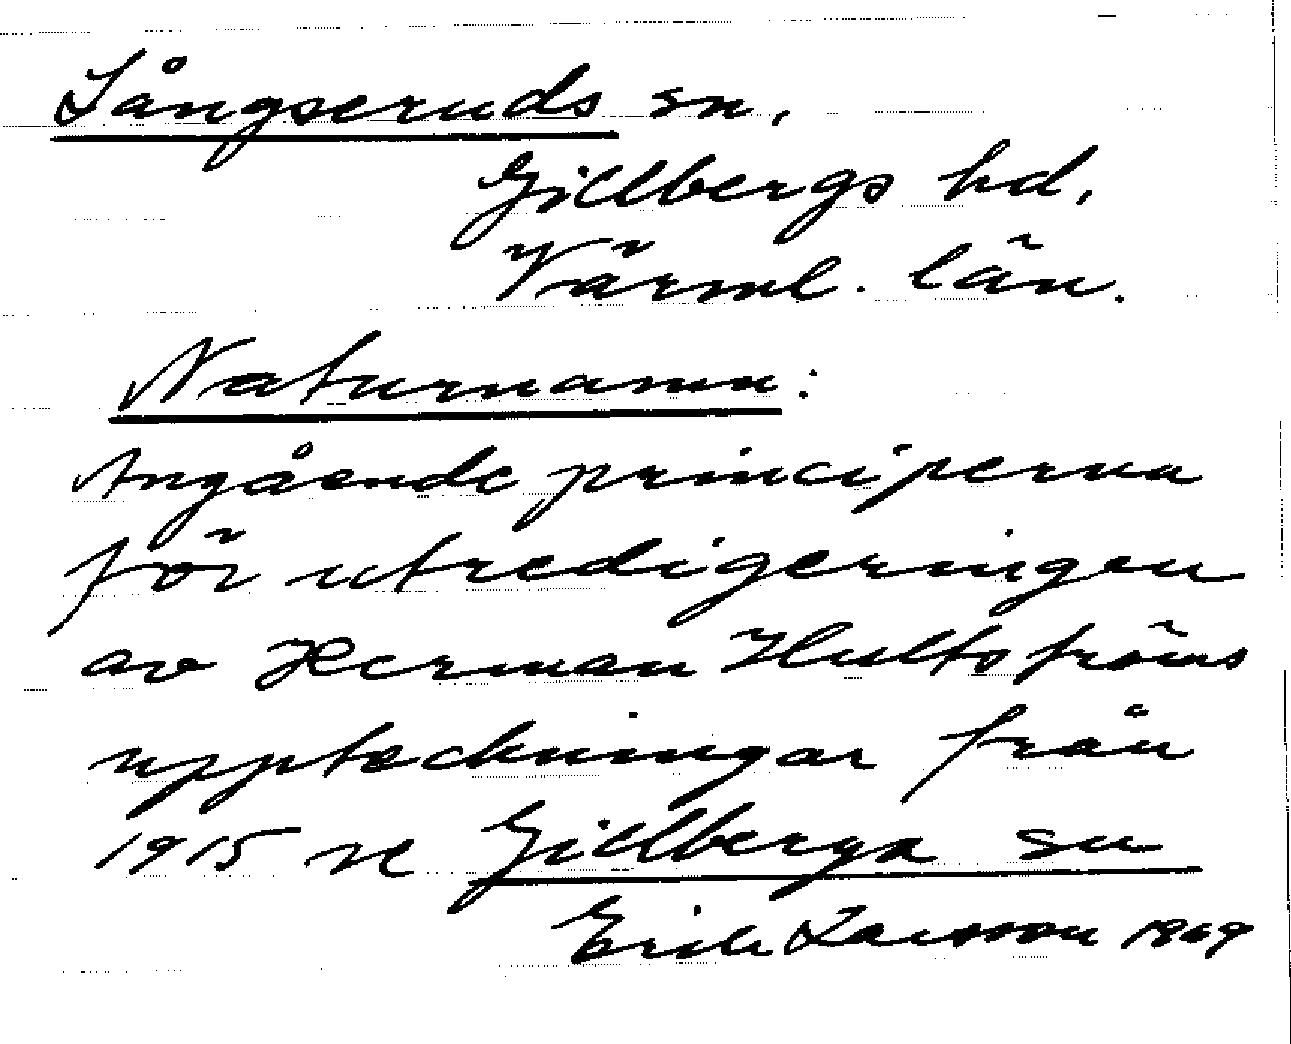 Långseruds sn.
Gillbergs hd.
Värml. län.
Naturnamn:
Angående principerna
för utredigeringen
av Herman Hultströms
uppteckningar från
1915 se Gillberga sn
Erik Larsson 1969